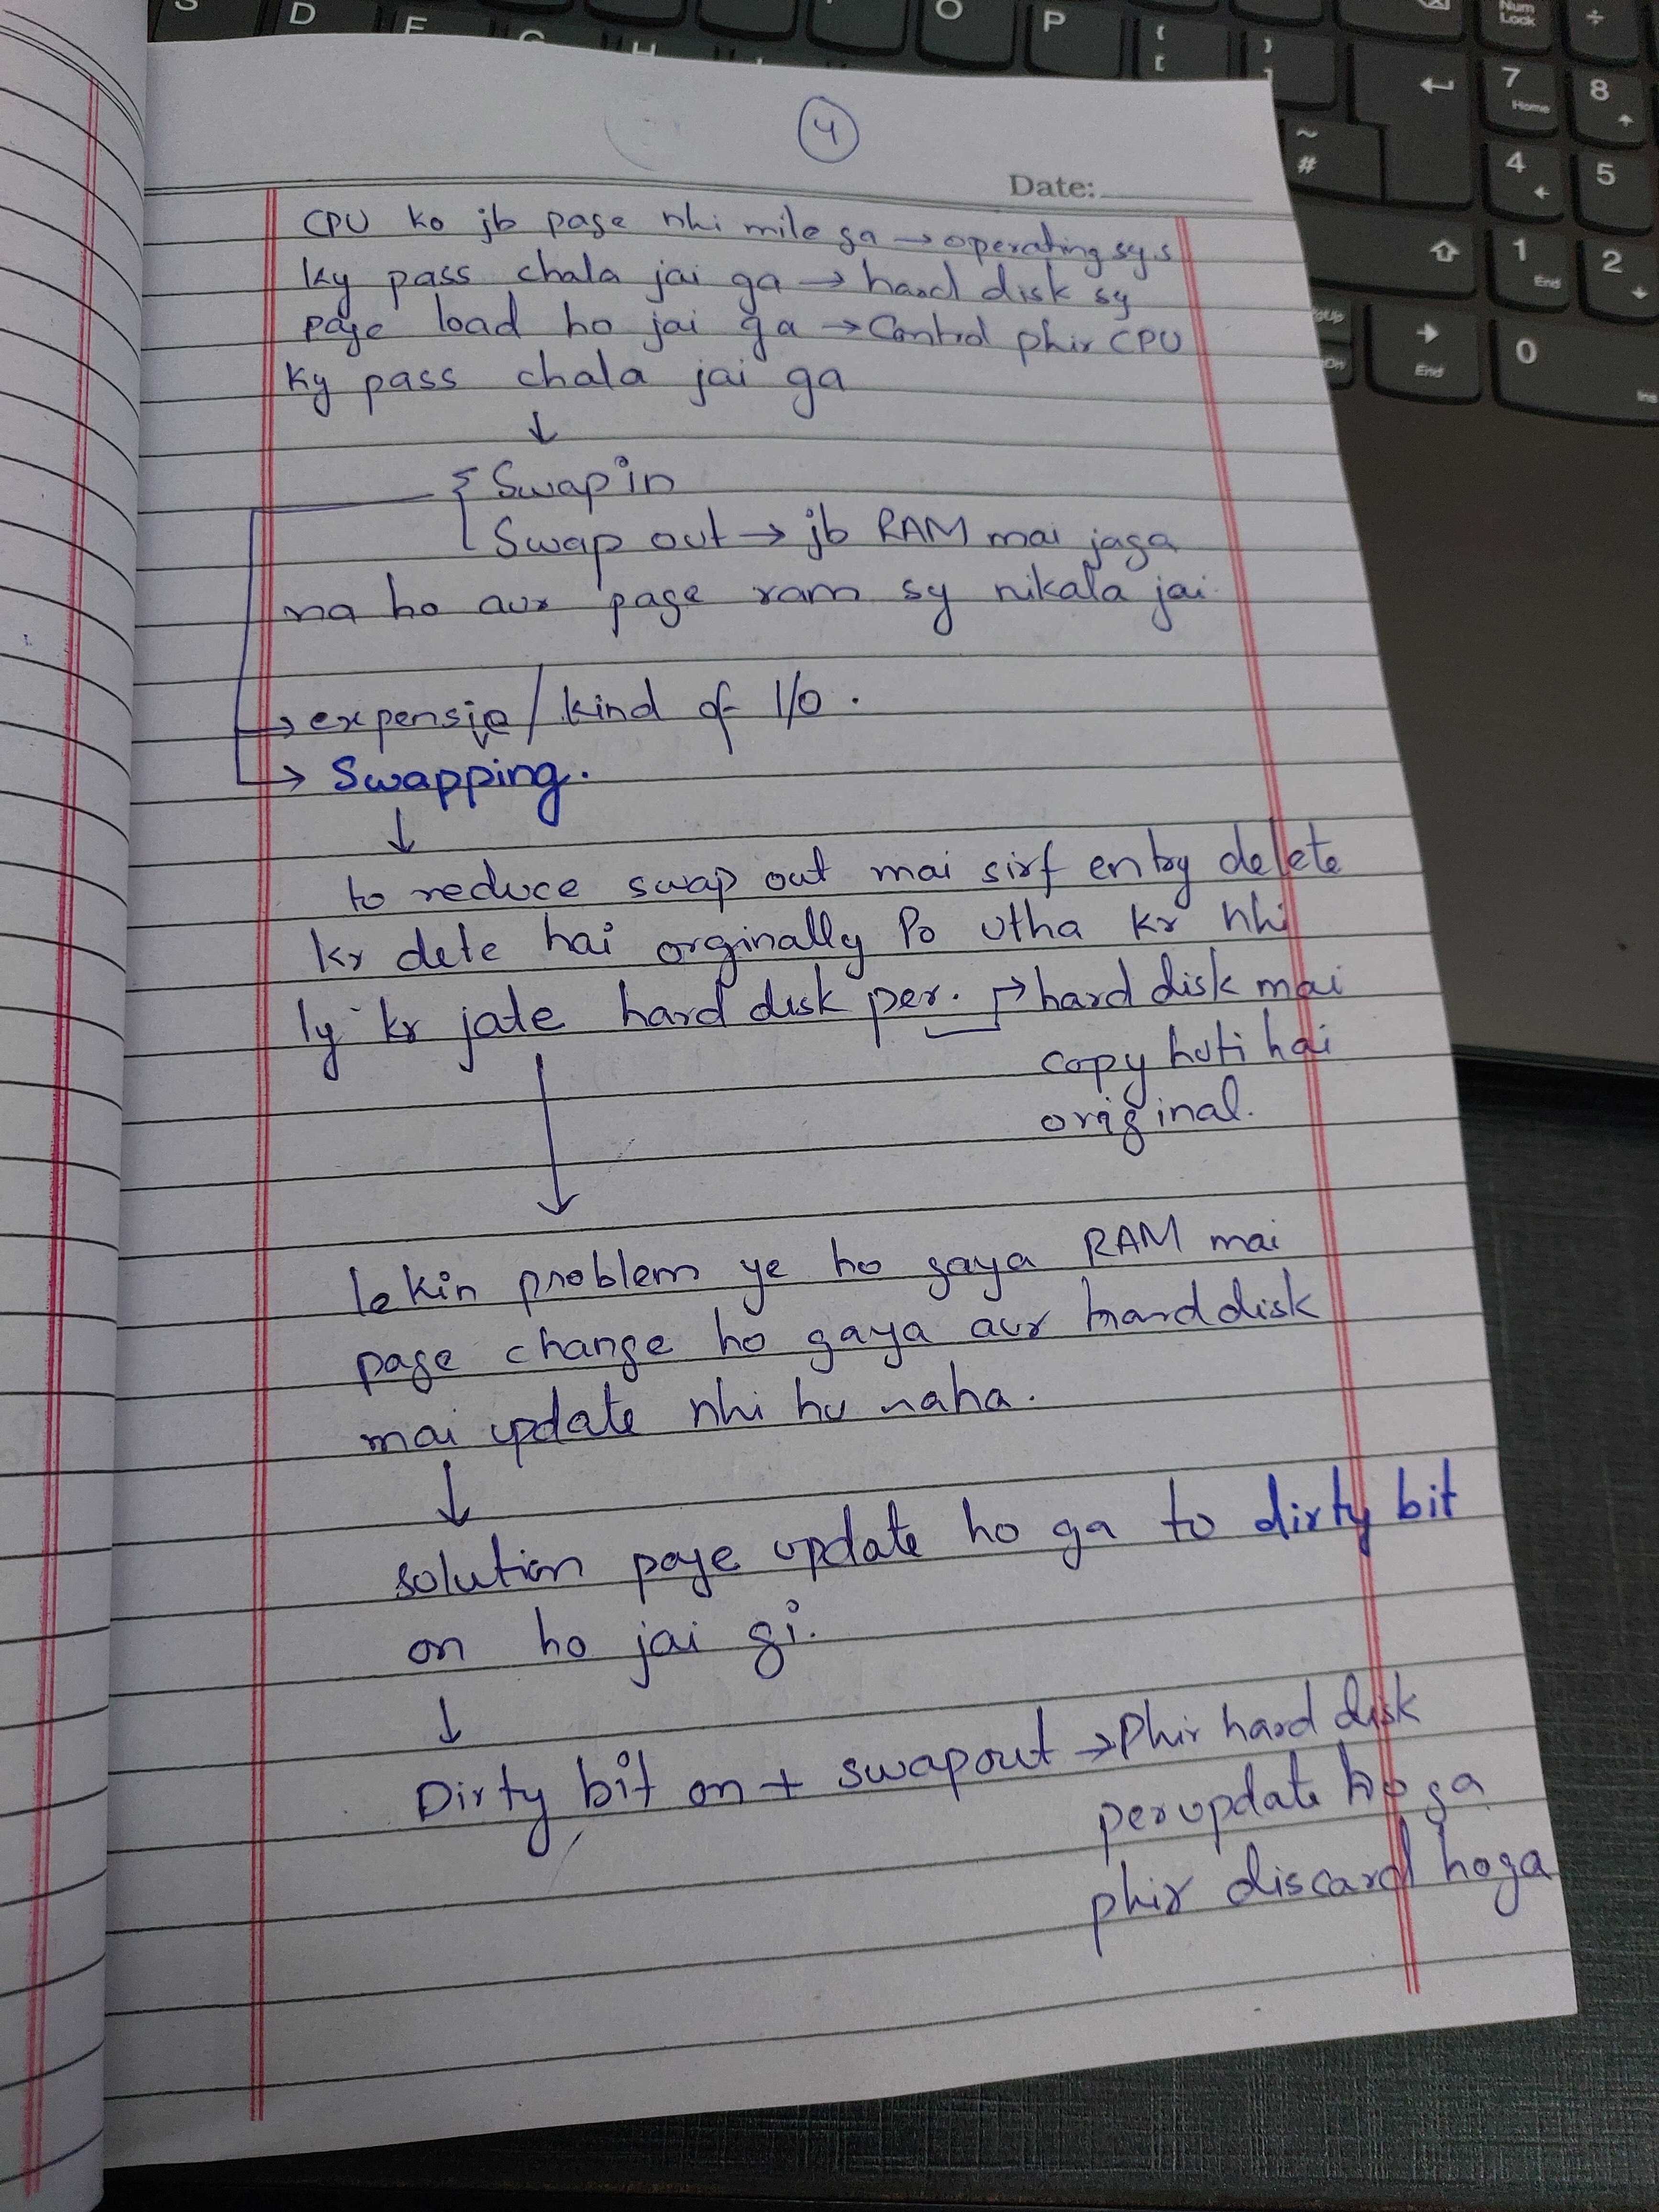 4
Date:
CPU ko jb page nhi mile ga → operating sys
ky pass chala jai ga → hard disk sy
page load ho jai ga → Control phir CPU
ky pass chala jai ga
↓
Swap in
Swap out → jb RAM mai jaga
na ho aur page ram sy nikala jai
→ expensive / kind of I/O.
→ Swapping.
↓
to reduce swap out mai sirf entry delete
kr dete hai orginally Po utha kr nhi
ly kr jate hard disk per. → hard disk mai
copy hoti hai
original.
↓
lekin problem ye ho gaya RAM mai
page change ho gaya aur hard disk
mai update nhi hu
↓
solution page update ho ga to dirty bit
on ho jai gi.
↓
Dirty bit on + swapout → Phir hard disk
per update ho ga
phir discard hoga
S D F G H O P { [ } ] ~ #
Num Lock ÷
7 Home 8
4 5
1 End 2
End 0 Ins